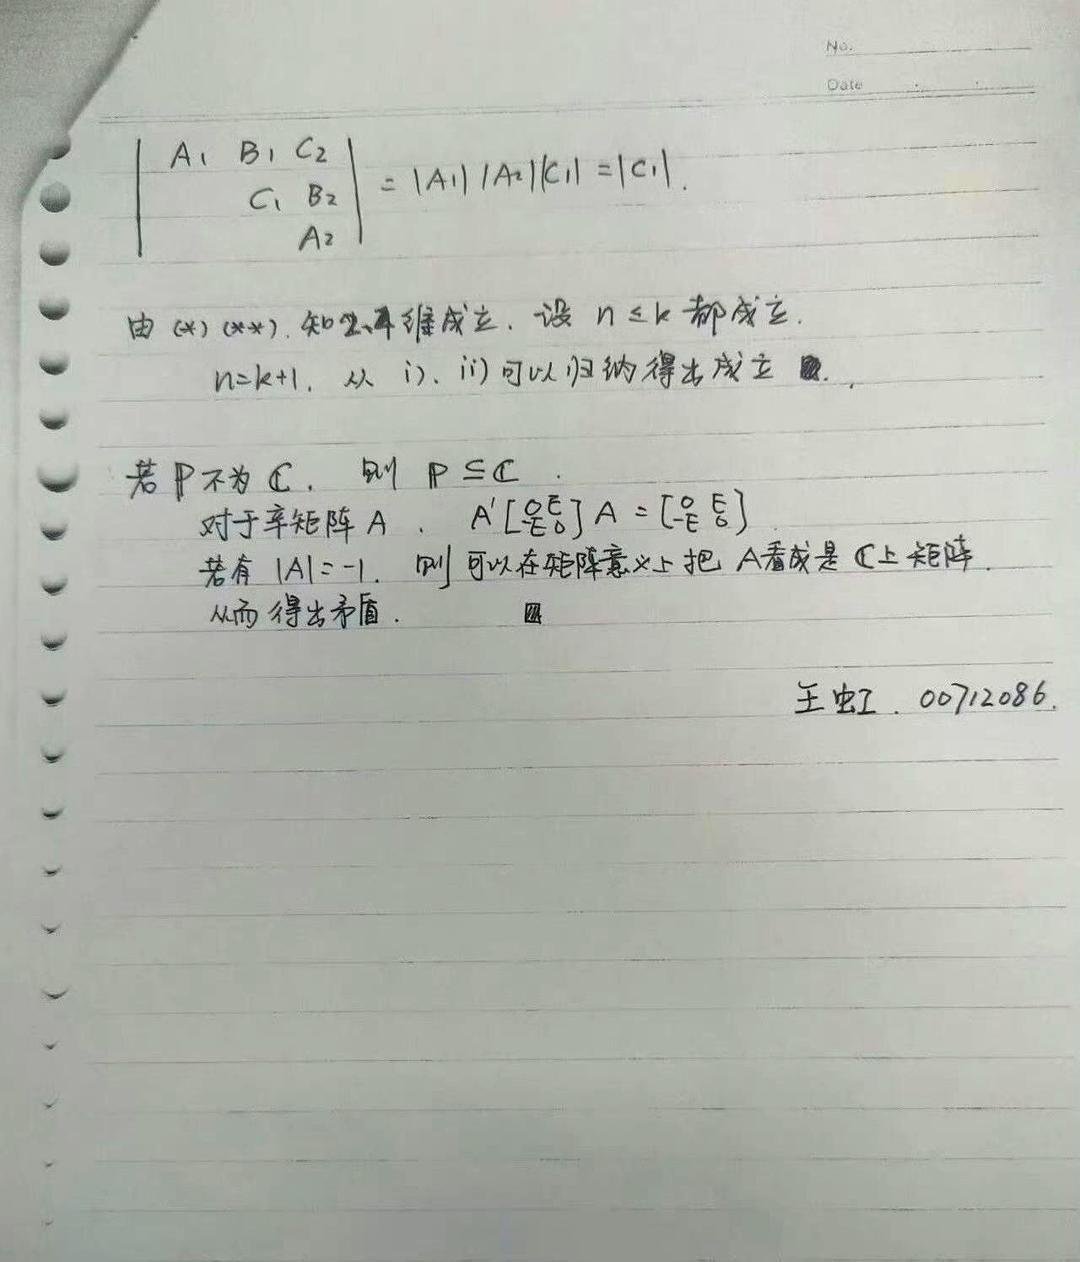 No.
Date
| A₁ B₁ C₂ |
| C₁ B₂ | = |A₁| |A₂| |C₁| = |C₁|.
| A₂ |
由 (*) (**). 知2、4维成立. 设 n ≤ k 都成立.
n=k+1. 从 i)、ii) 可以归纳得出成立
若 ℙ 不为 ℂ. 则 ℙ ⊆ ℂ.
对于辛矩阵 A. A′[0 E; -E 0] A = [0 E; -E 0]
若有 |A|=-1. 则可以在矩阵意义上把 A看成是 ℂ上矩阵.
从而得出矛盾.
王虹. 00712086.